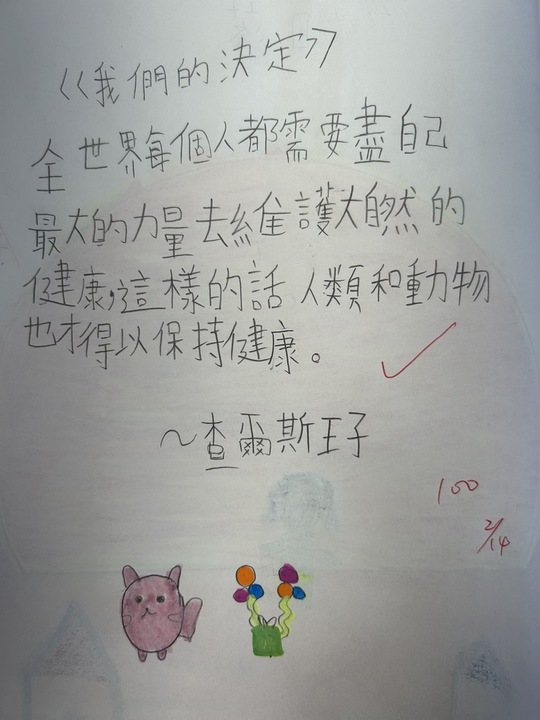 《我們的決定》
全世界每個人都需要盡自己
最大的力量去維護大自然的
健康,這樣的話人類和動物
也才得以保持健康。
~查爾斯王子
100
2/14